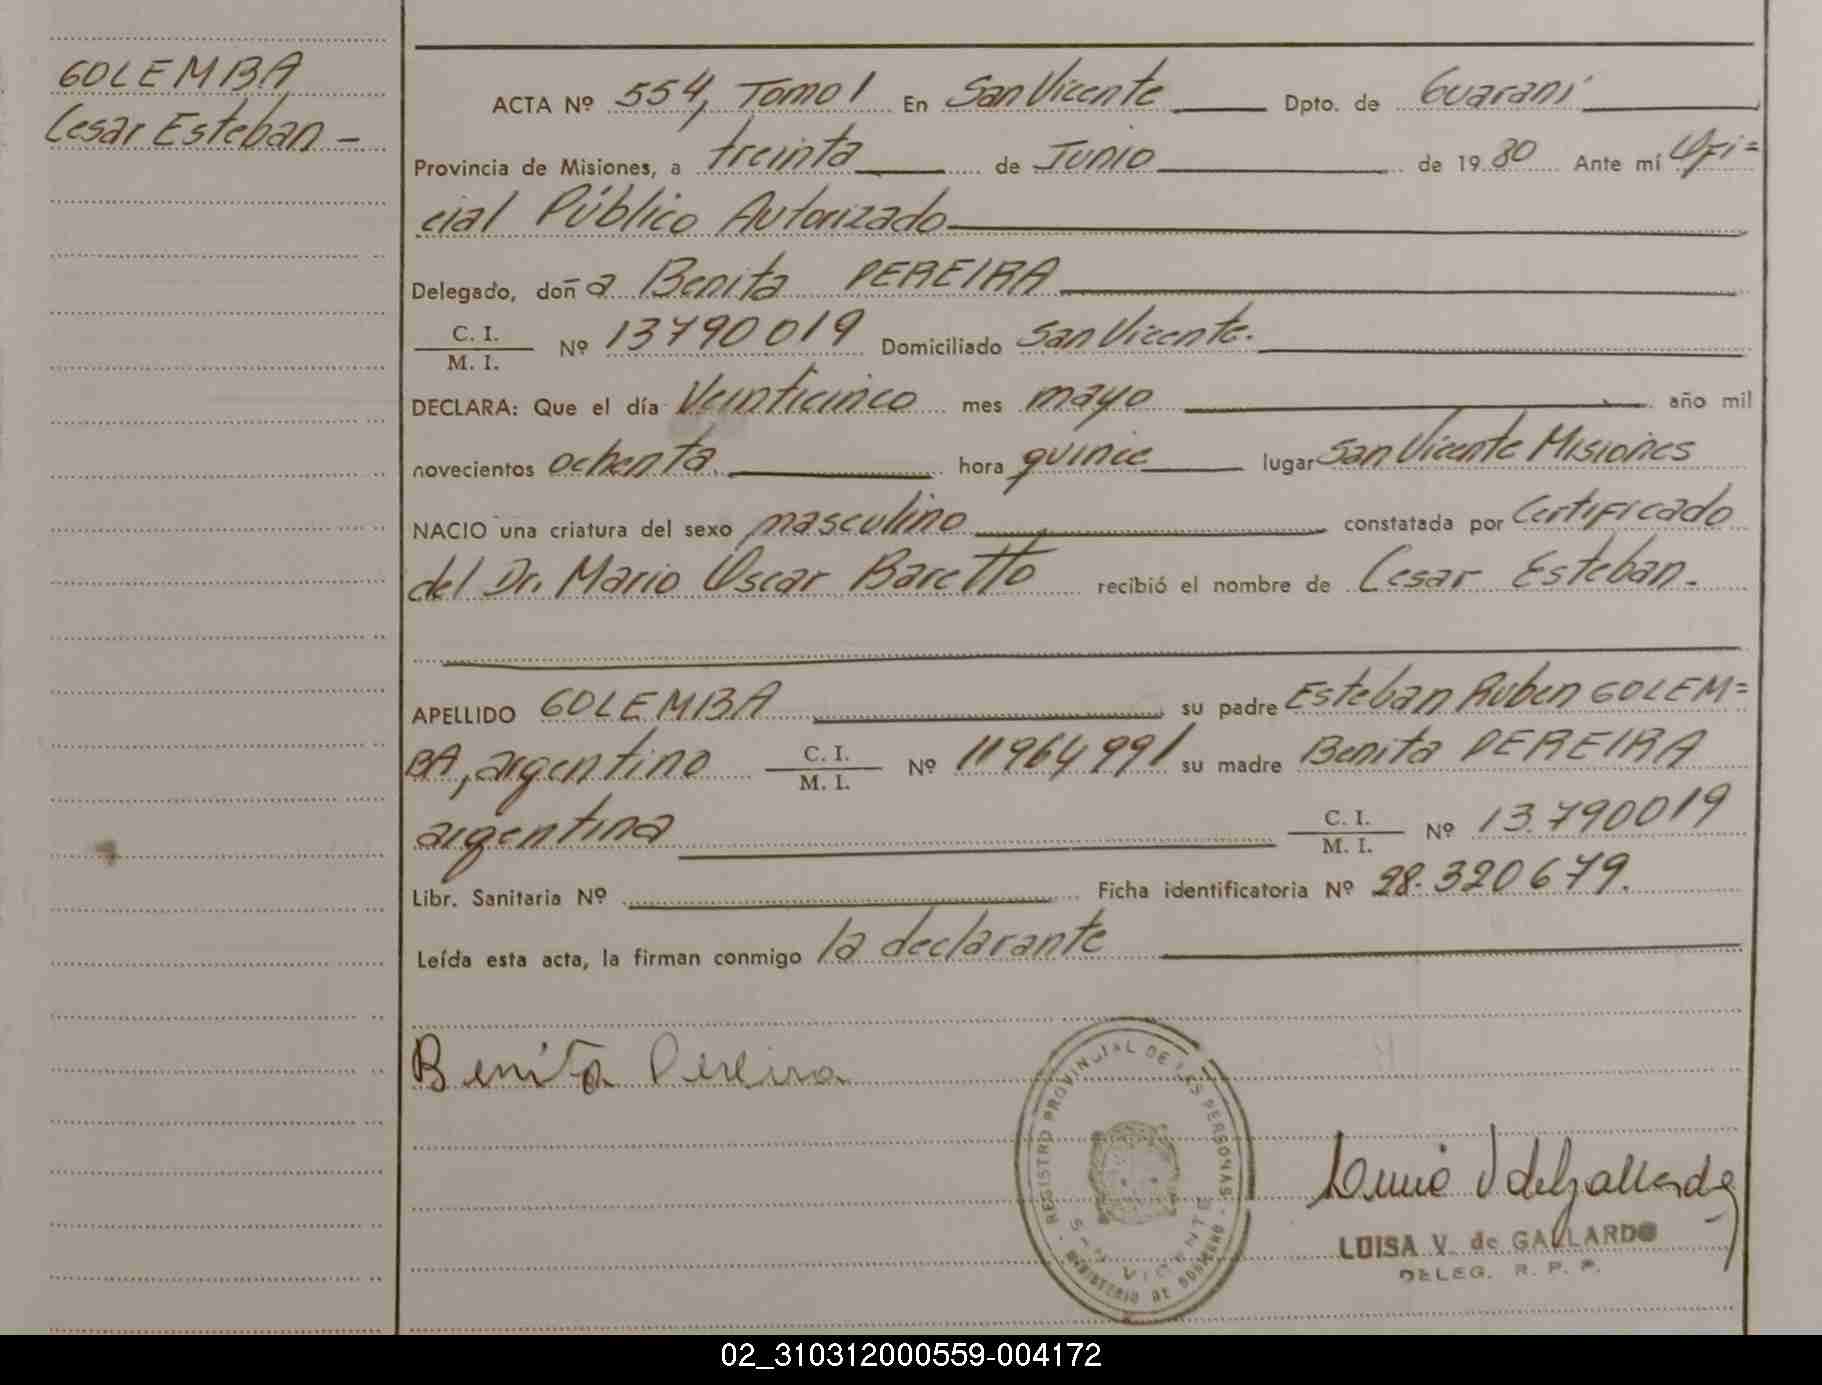 GOLEMBA
Cesar Esteban -
ACTA Nº 554, Tomo I En San Vicente Dpto. de Guaraní
Provincia de Misiones, a treinta de Junio de 1980 Ante mí Ofi=
cial Público Autorizado
Delegado, doña Benita PEREIRA
C. I.
M. I. Nº 13790019 Domiciliado San Vicente.
DECLARA: Que el día Veinticinco mes mayo año mil
novecientos ochenta hora quince lugar San Vicente Misiones
NACIO una criatura del sexo masculino constatada por Certificado
del Dr. Mario Oscar Baretto recibió el nombre de Cesar Esteban.
APELLIDO GOLEMBA su padre Esteban Ruben GOLEM=
BA, argentino C. I.
M. I. Nº 11964991 su madre Benita PEREIRA
argentina C. I.
M. I. Nº 13.790019
Libr. Sanitaria Nº Ficha identificatoria Nº 28.320679.
Leída esta acta, la firman conmigo la declarante
Benita Pereira
REGISTRO PROVINCIAL DE LAS PERSONAS
MINISTERIO DE GOBIERNO
SAN VICENTE
LUISA V. de GALLARDO
DELEG. R. P. P.
02_310312000559-004172